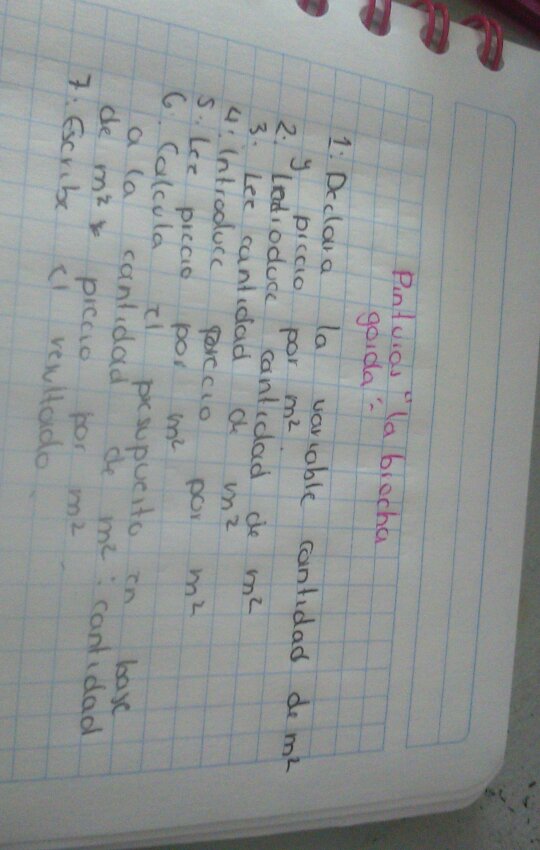 Pinturas "la brocha
gorda":
1: Declara la variable cantidad de m²
y precio por m²
2. Introduce cantidad de m²
3. Lee cantidad de m²
4: introduce precio por m²
5. Lee precio por m²
6. Calcula el presupuesto en base
a la cantidad de m² : cantidad
de m² * precio por m².
7: Escribe el resultado.